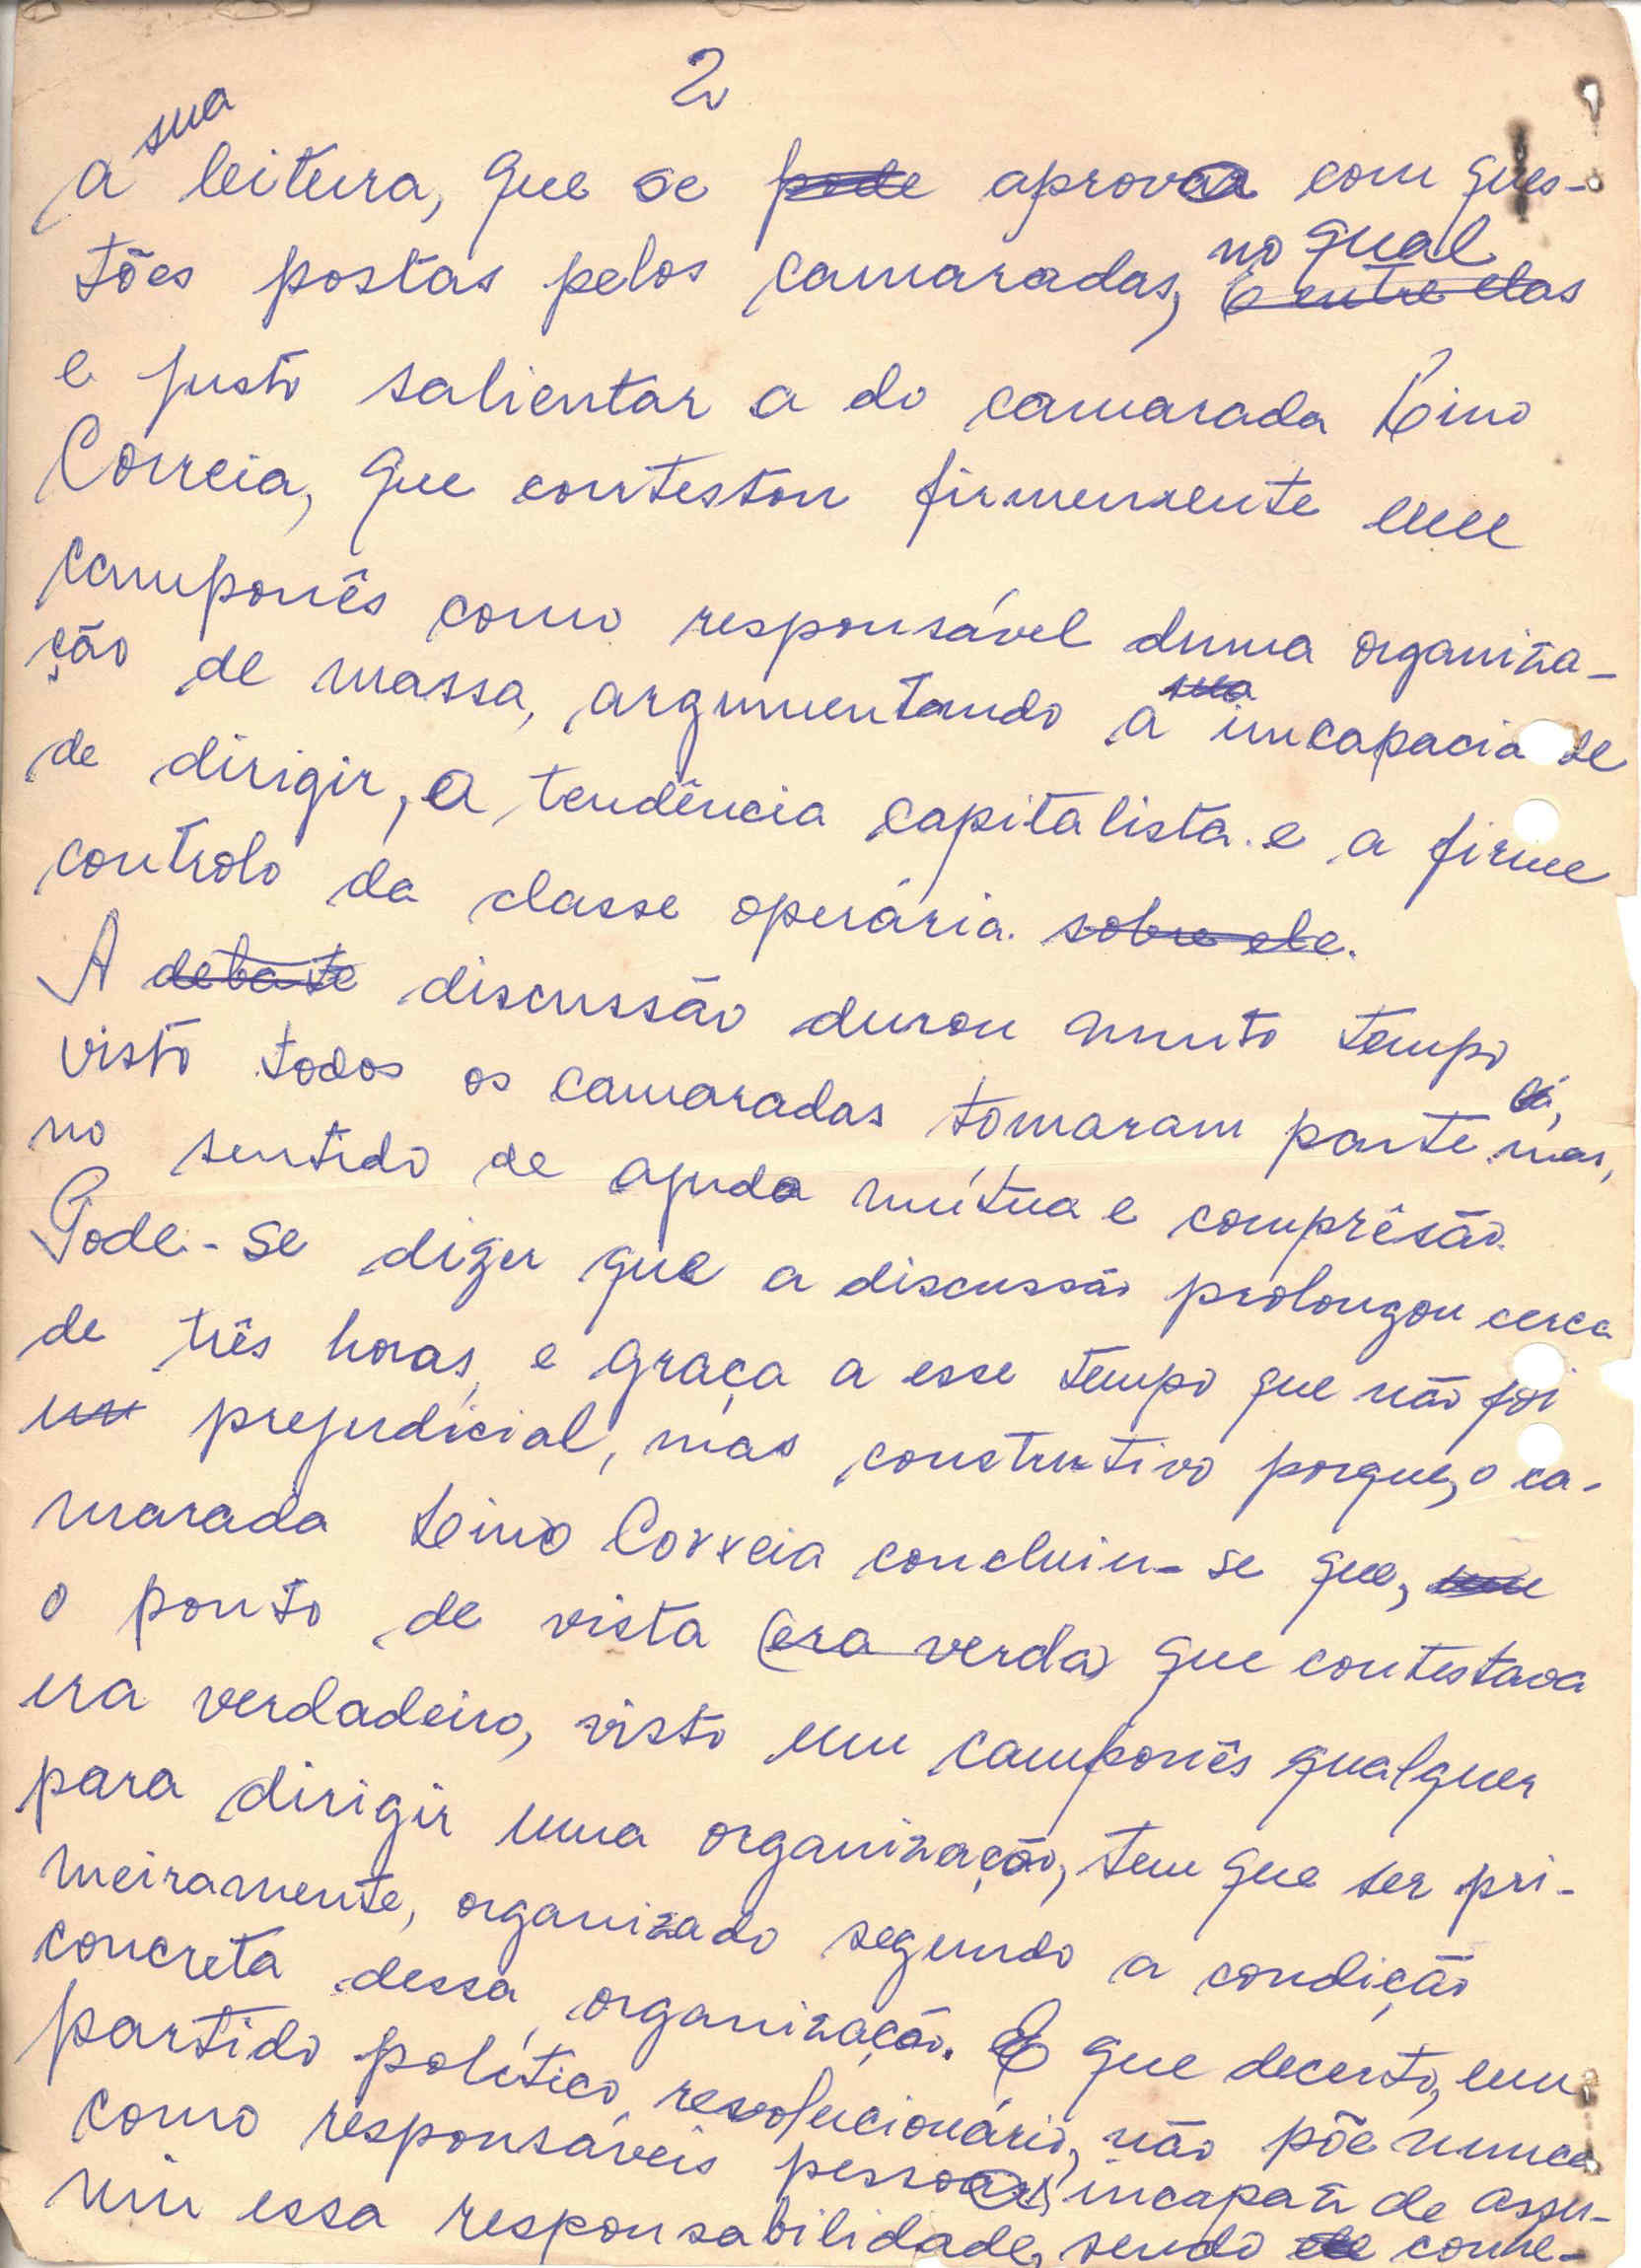 2
sua
a leitura, que se pode aprova com ques-
tões postas pelos camaradas, no qual
Entre elas
e justo salientar a do camarada Lino
Correia, que contestou firmemente um
camponês como responsável duma organiza-
ção de massa, argumentando a sua incapacidade
de dirigir, a tendência capitalista e a firme
controlo da classe operária. sobre ele.
A debate discussão durou muito tempo
visto todos os camaradas tomaram parte mas,
no sentido de ajuda mútua e comprêsão.
Pode-se dizer que a discussão prolongou cerca
de três horas, e graça a esse tempo que não foi
um prejudicial, mas construtivo porque, o ca-
marada Lino Correia concluiu-se que,
o ponto de vista (era verda) que contestava
era verdadeiro, visto um camponês qualquer
para dirigir uma organização, tem que ser pri-
meiramente, organizado segundo a condição
concreta dessa organização. E que decerto, um
partido político revolucionário, não põe nunca
como responsáveis pessoas incapaz de assu-
mir essa responsabilidade, sendo conhe-